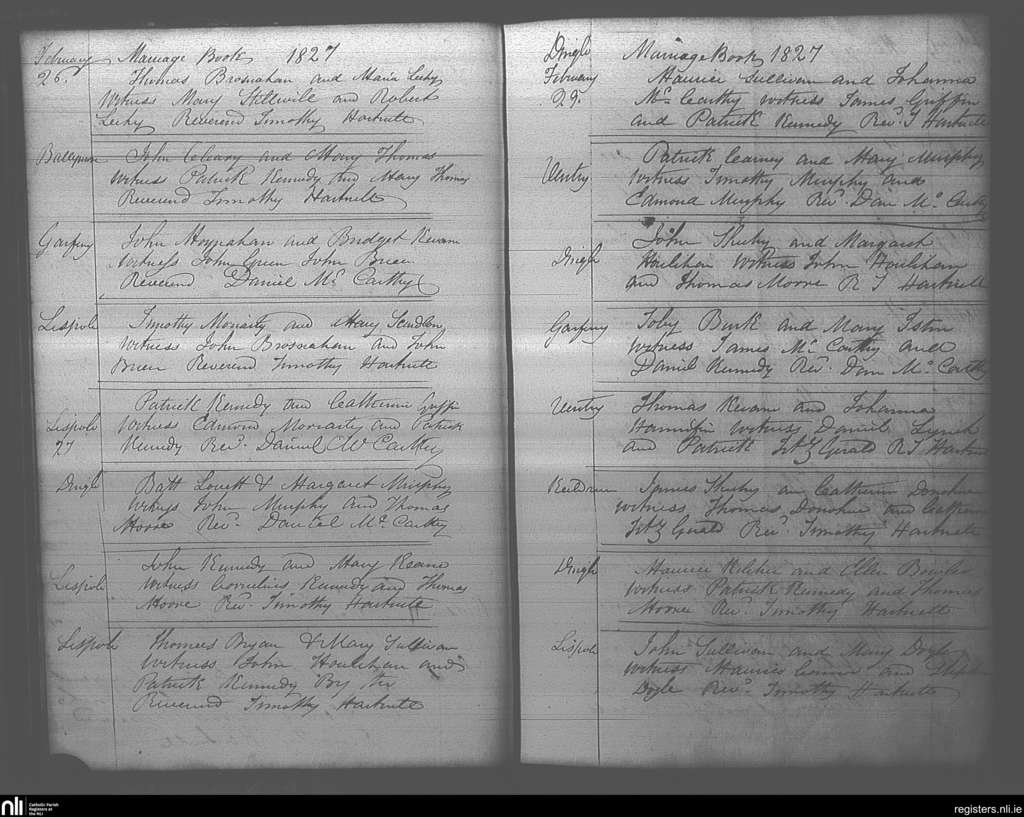 February Marriage Book 1827
26. Thomas Brosnahan and Maria Leehy
Witness Mary Stillwill and Robert
Leehy Reverend Timothy Hartnett
John Cleary and Mary Thomas
Witness Patrick Kennedy and Mary Thomas
Reverend Timothy Hartnett
Garfiny John Moynahan and Bridget Kevane
Witness John Green John Breen
Reverend Daniel Mc Carthy
Lispole Timothy Moriarty and Mary Scanlon
Witness John Brosnahan and John
Breen Reverend Timothy Hartnett
Patrick Kennedy and Catherine Griffin
Lispole Witness Edmond Moriarty and Patrick
27 Kennedy Revd. Daniel Mc Carthy
Dingle Batt Lovett & Margaret Murphy
Witness John Murphy and Thomas
Moore Revd. Daniel Mc Carthy
John Kennedy and Mary Keane
Lispole Witness Cornelius Kennedy and Thomas
Moore Revd. Timothy Hartnett
Lispole Thomas Bryan & Mary Sullivan
Witness John Houlihan and
Patrick Kennedy By the
Reverend Timothy Hartnett
Dingle Marriage Book 1827
February Maurice Sullivan and Johanna
29. Mc Carthy witness James Griffin
and Patrick Kennedy Revd. T Hartnett
Patrick Cearney and Mary Murphy
Ventry Witness Timothy Murphy and
Edmond Murphy Revd. Dan Mc Carthy
John Sheehy and Margaret
Dingle Houlihan Witness John Houlihan
and Thomas Moore R T Hartnett
Garfiny Toby Burk and Mary
Witness James Mc Carthy and
Daniel Kennedy Revd. Dan Mc Carthy
Ventry Thomas Kevane and Johanna
Hannifin Witness Daniel Lynch
and Patrick Fitz Gerald R T Hartnett
James Sheehy an Catherine Donohue
Witness Thomas Donohue and Catherine
Fitz Gerald Revd. Timothy Hartnett
Dingle Maurice Kelcher and Ellen Bowler
Witness Patrick Kennedy and Thomas
Moore Revd. Timothy Hartnett
Lispole John Sullivan and Mary Doyle
Witness Maurice Connor and Stephen
Doyle Revd. Timothy Hartnett
nli Catholic Parish
Registers at
the NLI
registers.nli.ie